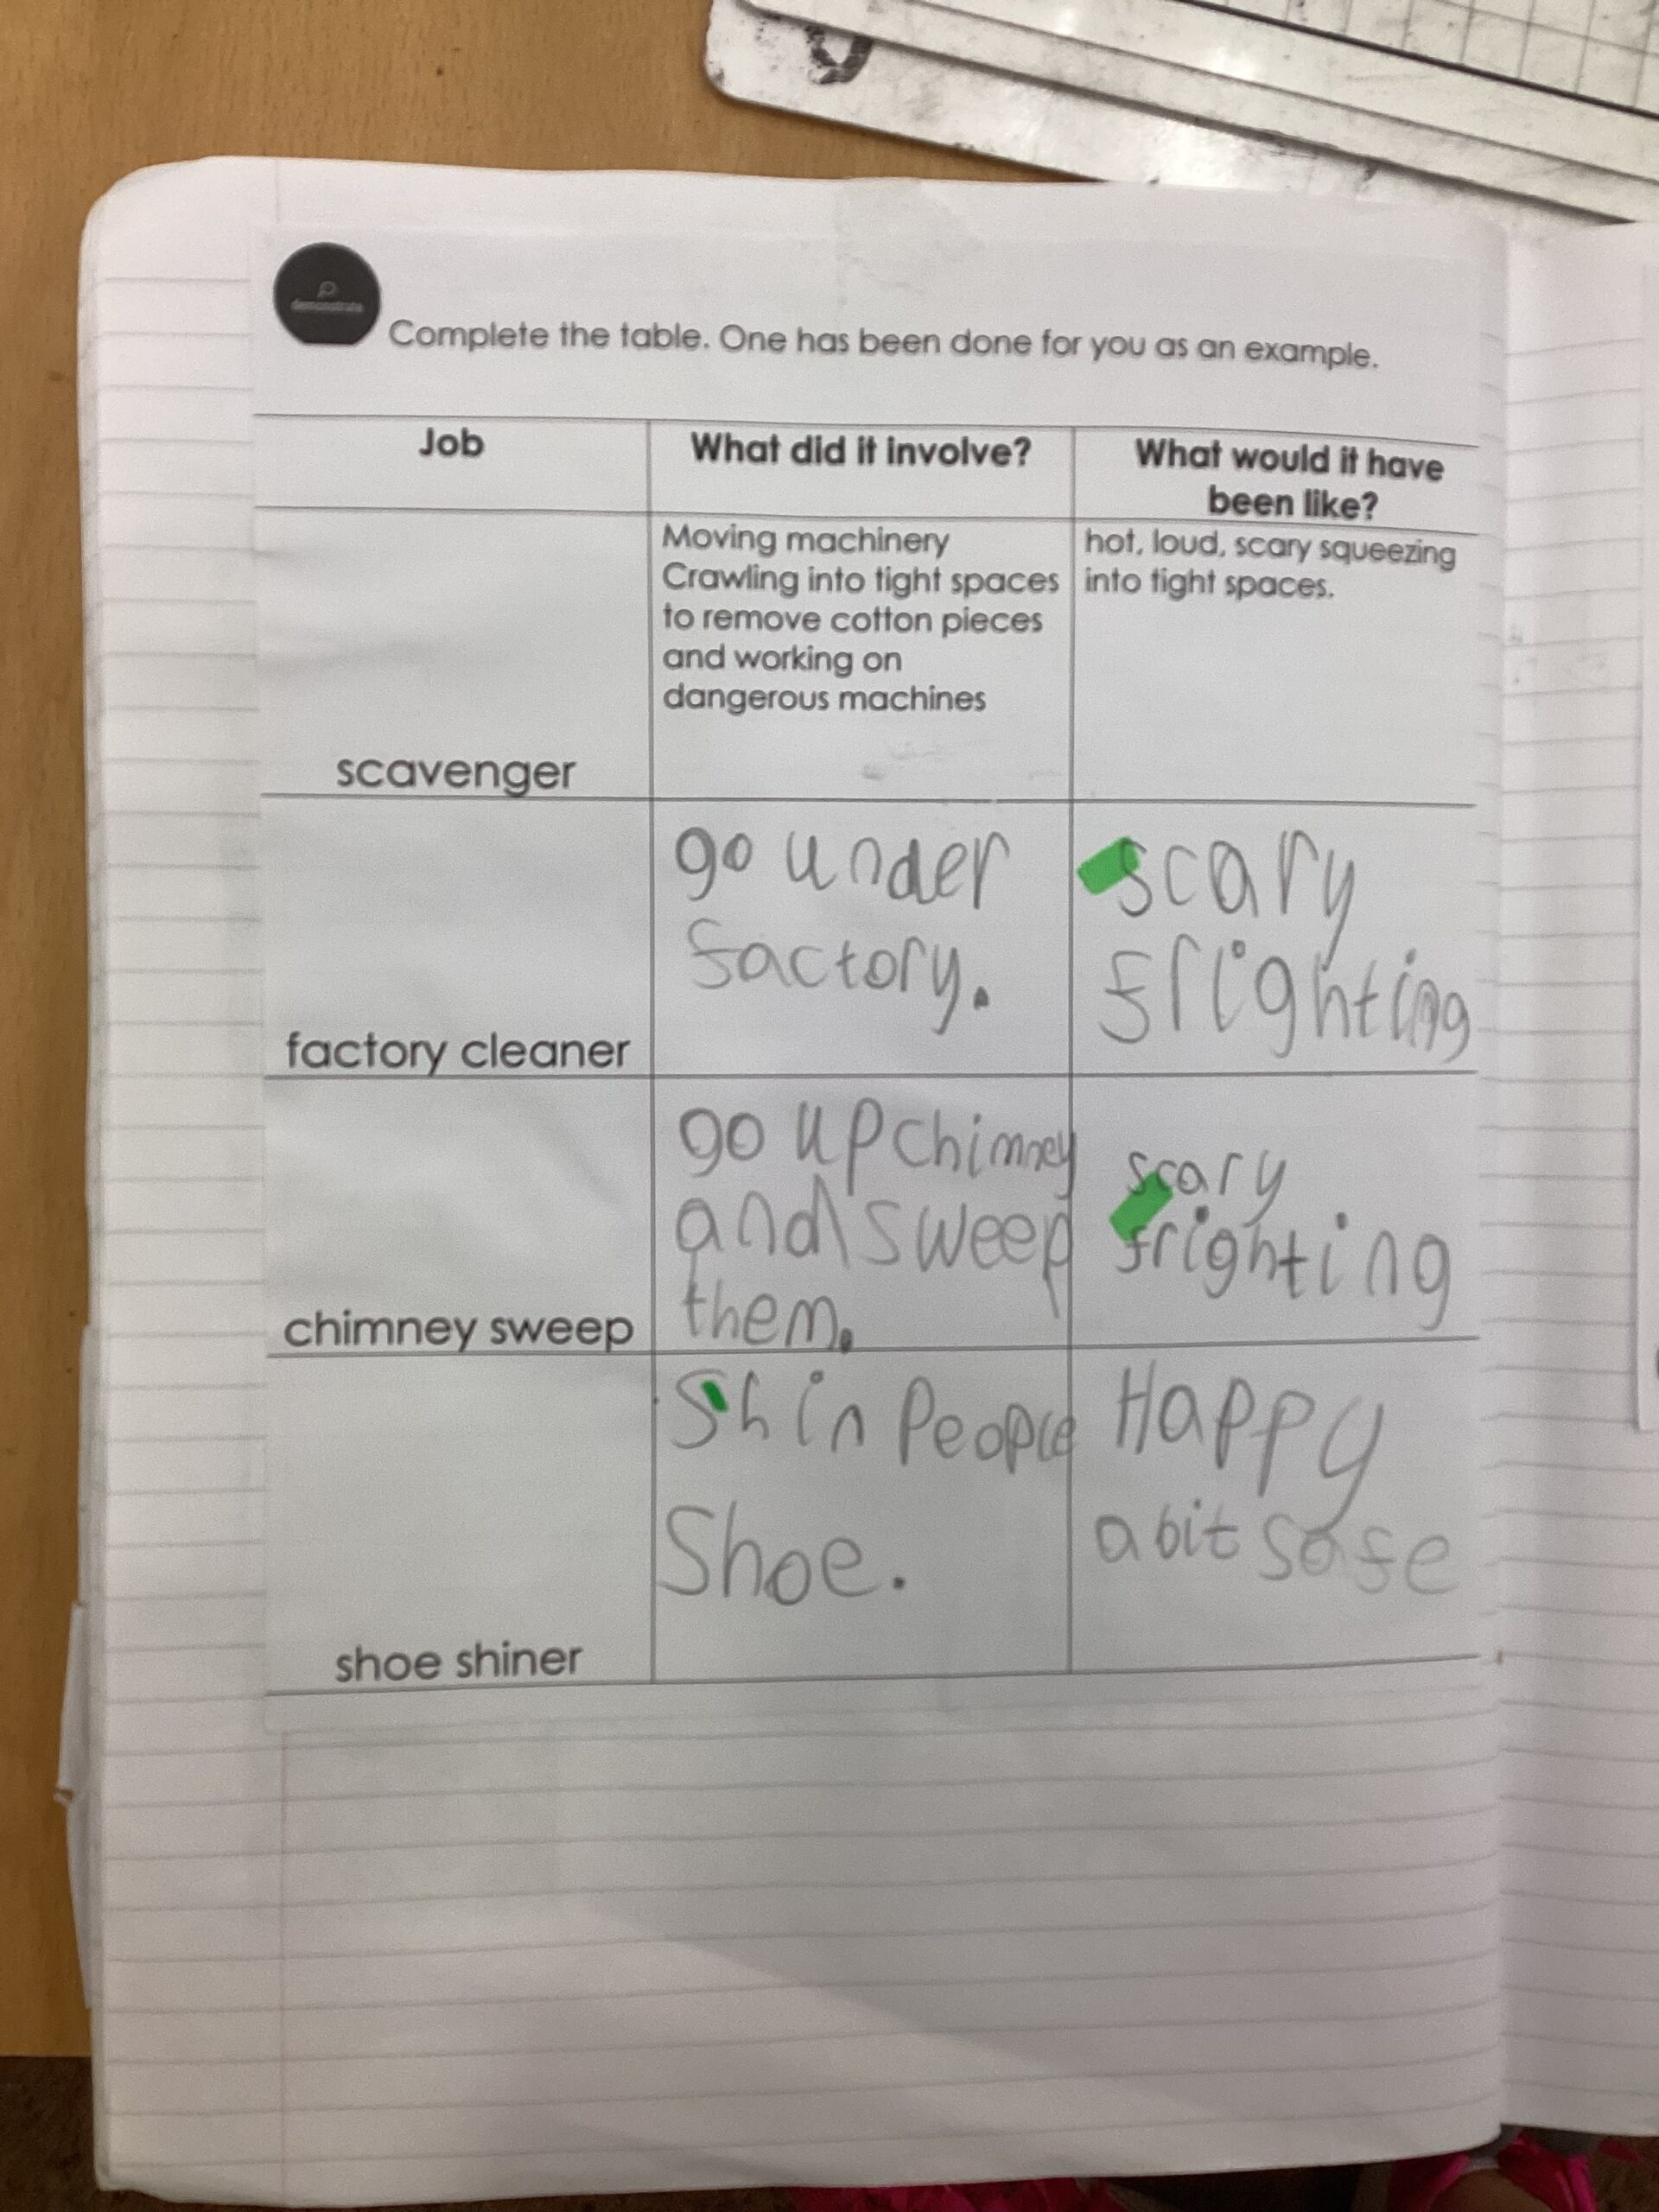 demonstrate
Complete the table. One has been done for you as an example.
Job
What did it involve?
What would it have
been like?
scavenger
Moving machinery
Crawling into tight spaces
to remove cotton pieces
and working on
dangerous machines
hot, loud, scary squeezing
into tight spaces.
factory cleaner
go under
factory.
scary
frighting
chimney sweep
go up chimney
and sweep
them.
scary
frighting
shoe shiner
Shin People
Shoe.
Happy
a bit safe